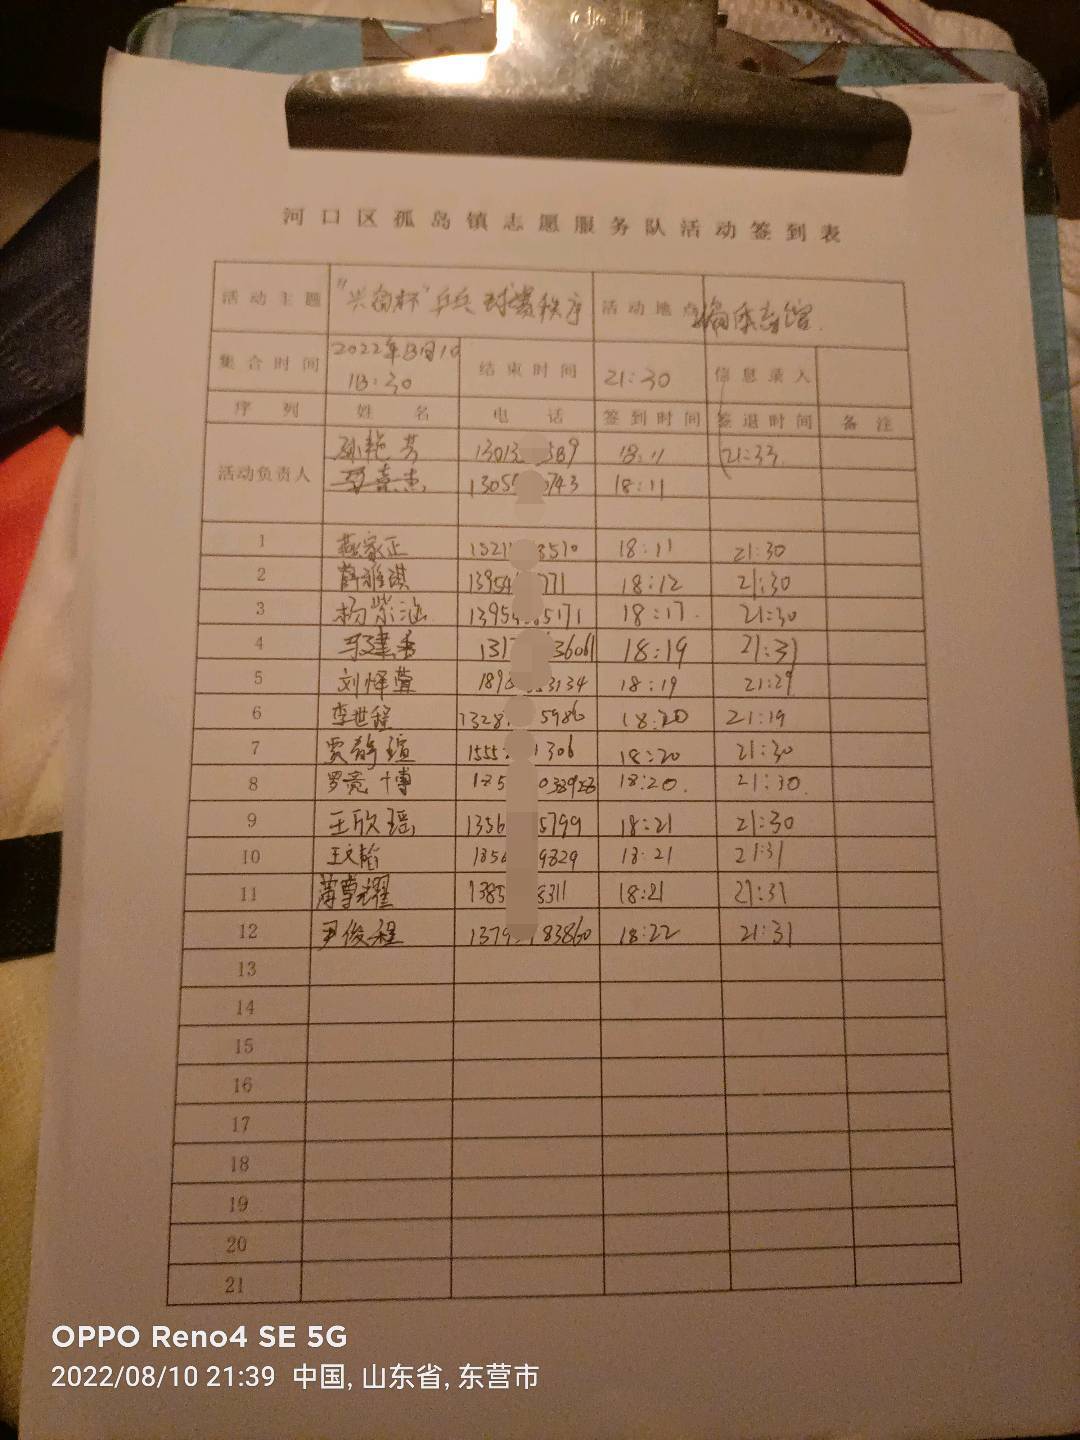 河口区孤岛镇志愿服务队活动签到表
活动主题 乒乓球赛秩序 活动地点
集合时间 2022年8月10 18:30 结束时间 21:30 信息录入
序列 姓名 电话 签到时间 签退时间 备注
活动负责人
孙艳芳 1301 589 18:11 21:33
1305 743 18:11
1 燕家正 1521 3510 18:11 21:30
2 薛雅淇 1395 771 18:12 21:30
3 杨紫涵 1395 5171 18:17 21:30
4 1317 36061 18:19 21:31
5 刘怿萱 189 3134 18:19 21:29
6 李世程 1328 5986 18:20 21:19
7 贾静瑄 1555 1306 18:20 21:30
8 185 18:20 21:30
9 王欣瑶 1356 5799 18:21 21:30
10 185 9829 18:21 21:31
11 1385 8311 18:21 21:31
12 尹俊程 1379 83860 18:22 21:31
13
14
15
16
17
18
19
20
21
OPPO Reno4 SE 5G
2022/08/10 21:39 中国, 山东省, 东营市